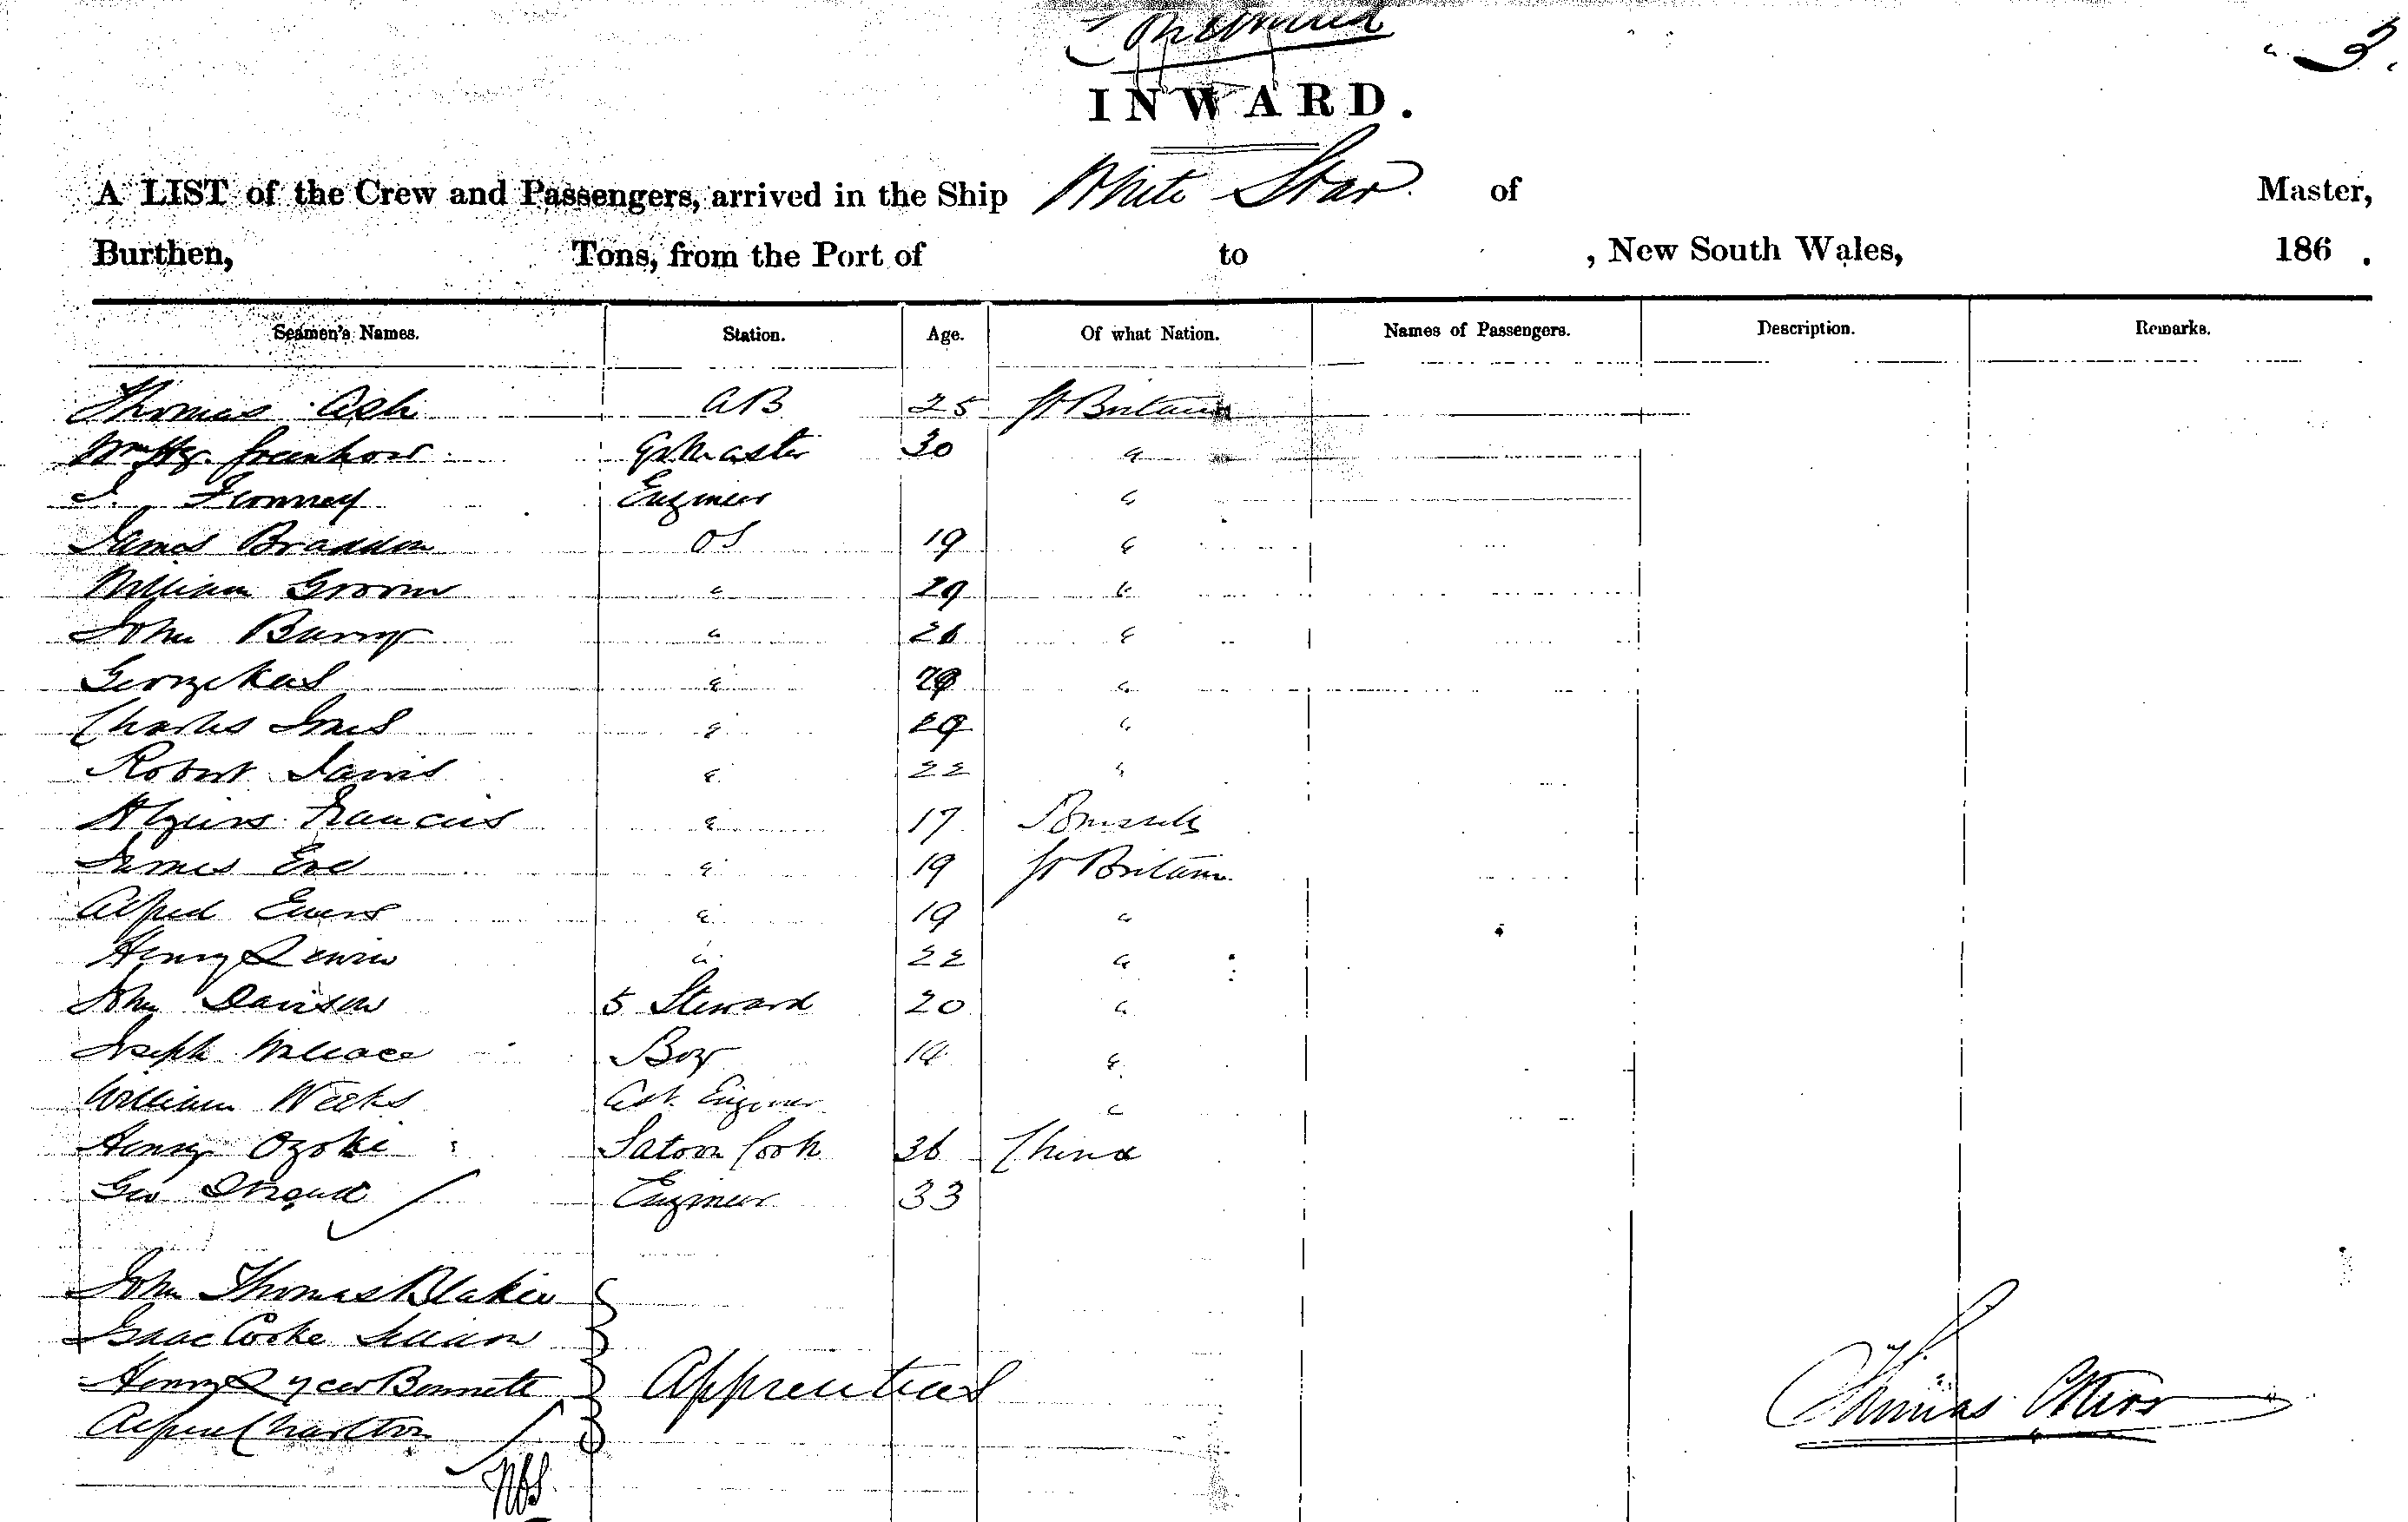 Continued
3.
INWARD.
A LIST of the Crew and Passengers, arrived in the Ship White Star of Master,
Burthen, Tons, from the Port of to , New South Wales, 186 .
Seamen's Names. Station. Age. Of what Nation. Names of Passengers. Description. Remarks.
Thomas Ash AB 25 Gt Britain
Wm Hy. Greenhow Qr Master 30 "
Engineer "
James Braddon OS 19 "
William Groom " 29 "
John Barry " 26 "
George "
Charles " 29 "
Robert " 22 "
Francis " 17 Brussels
James Eve " 19 Gt Britain
Alfred Evers " 19 "
Henry Lewin " 22 "
John Davison 5 Steward 20 "
Joseph Wallace Boy 14 "
William Weeks Ast. Engineer "
Henry Ozoki Saloon Cook 36 China
Geo Engineer 33
John Thomas Blakie
Isaac Cooke
Henry Bennett Apprentices
Alfred Charlton
Thomas